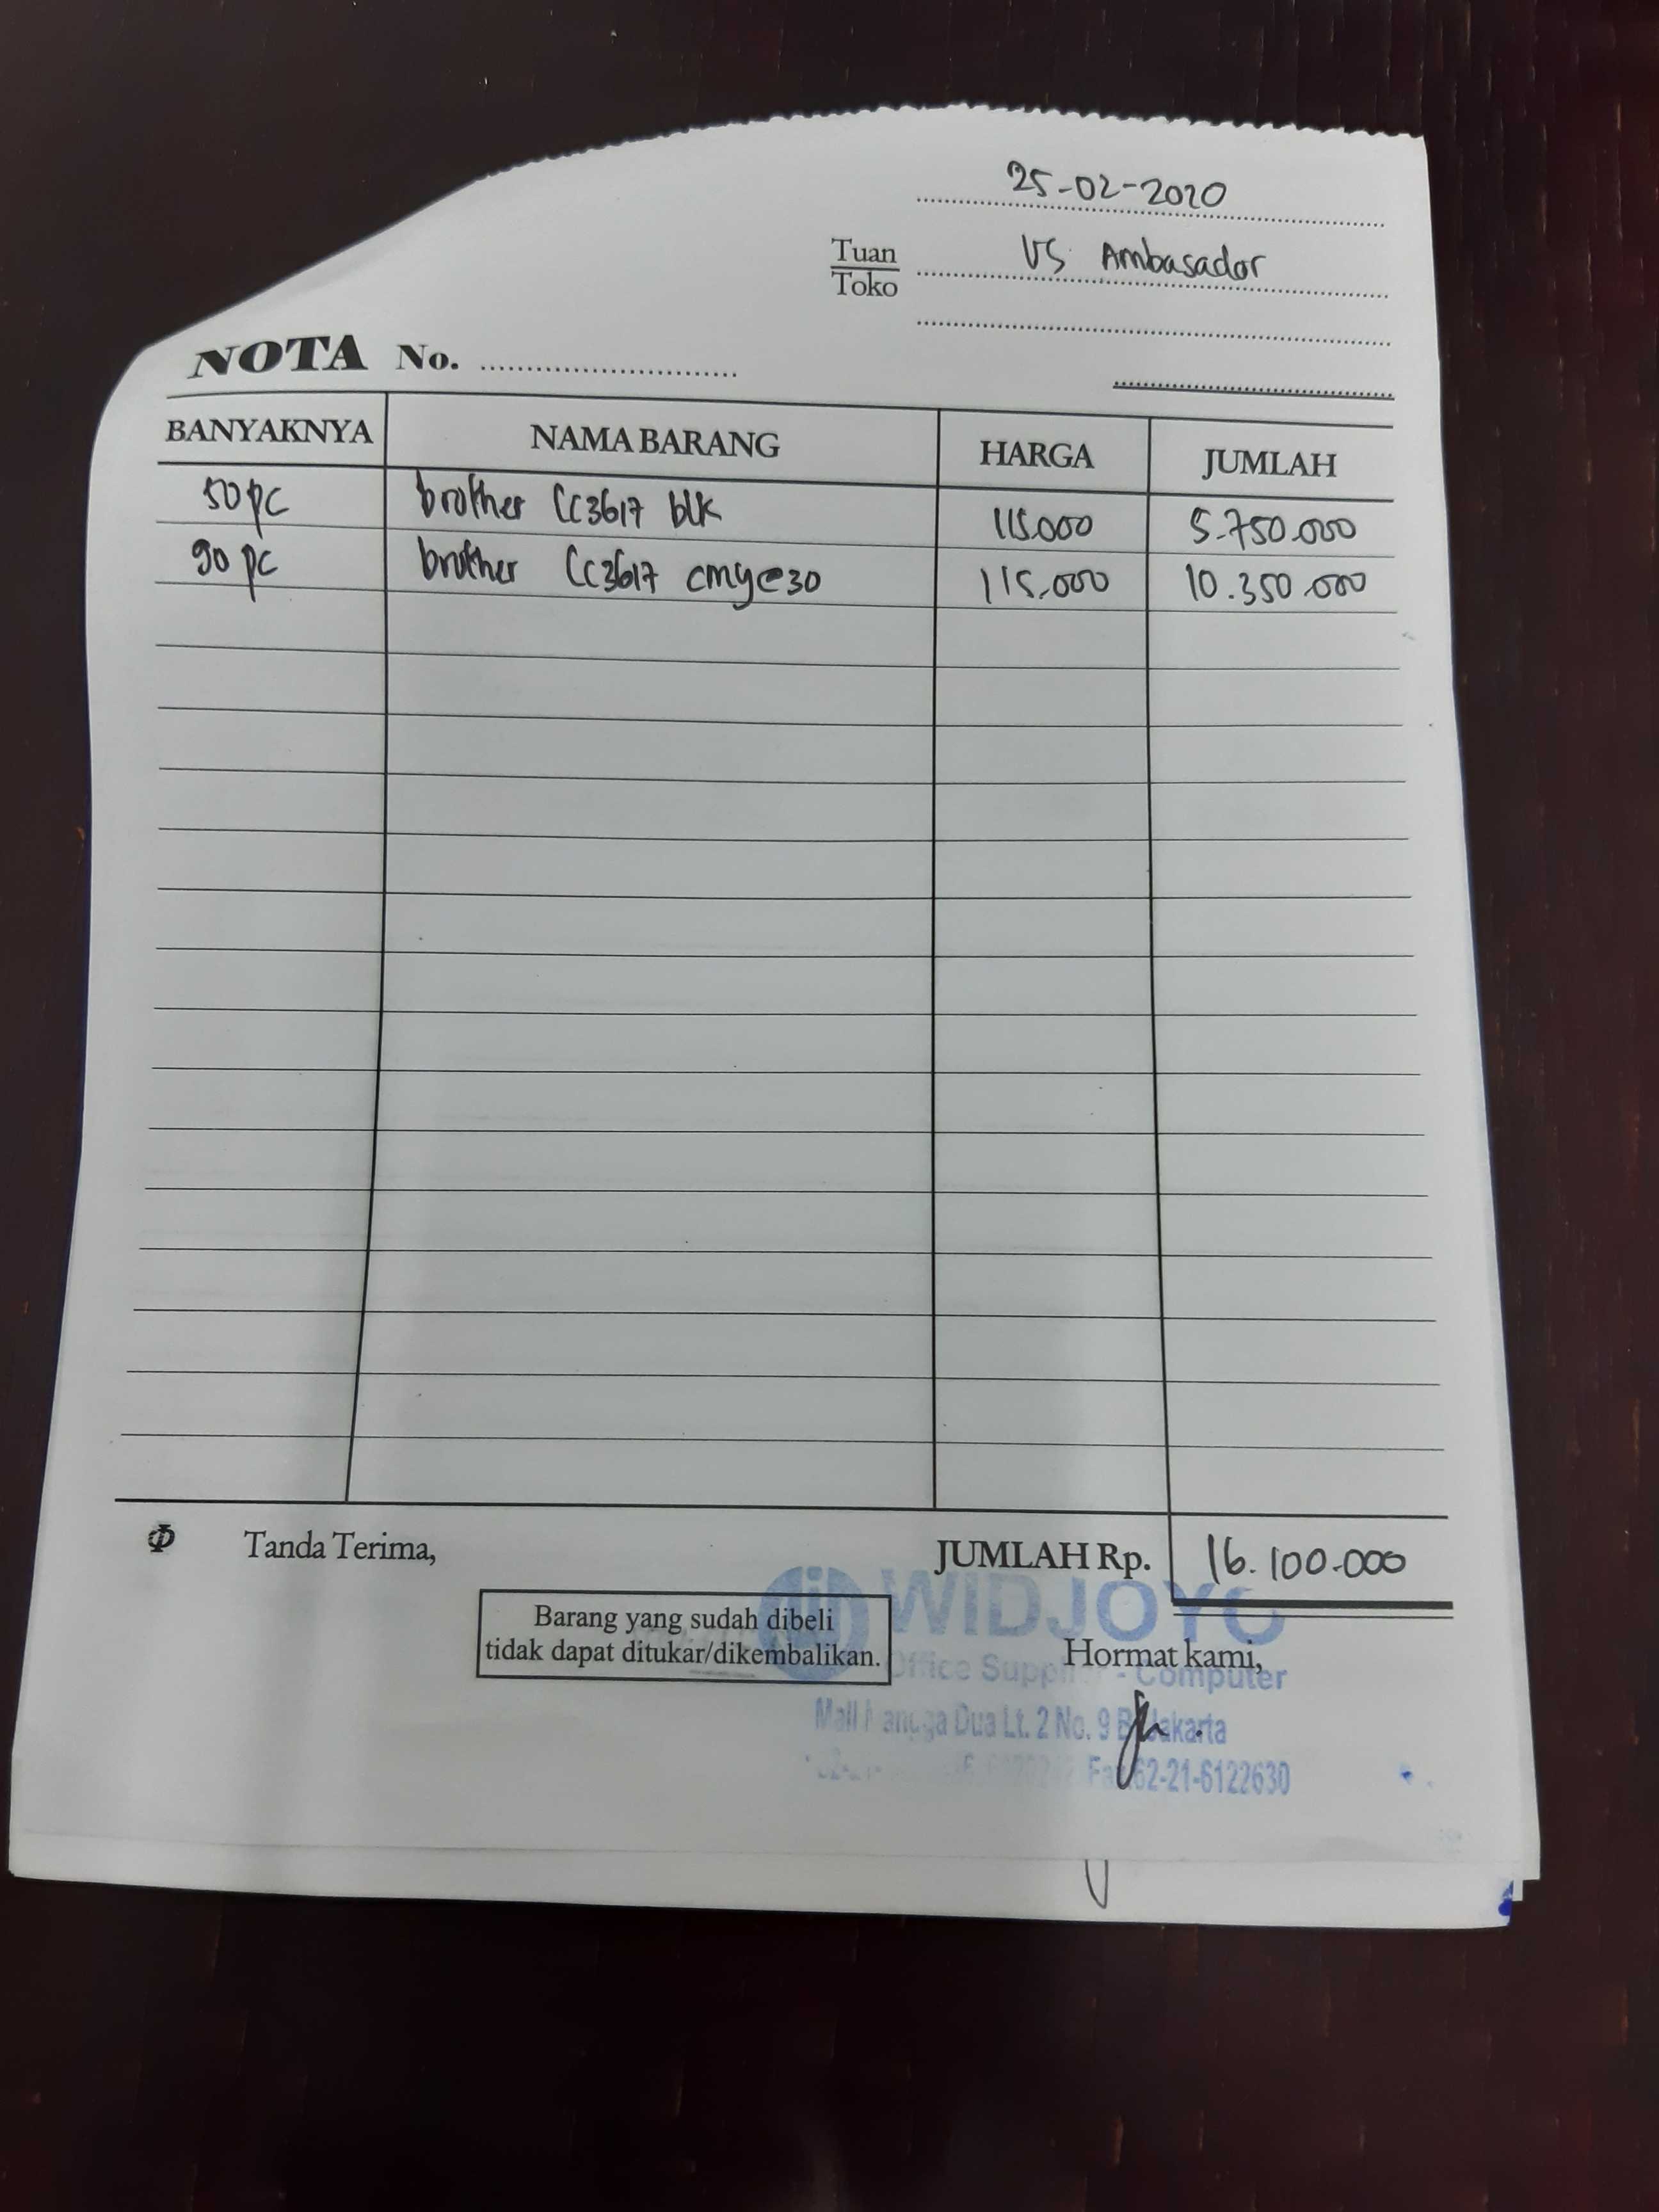 25-02-2020
Tuan
Toko
VS Ambasador
NOTA No.
BANYAKNYA NAMA BARANG HARGA JUMLAH
50 pc brother Lc3617 blk 115.000 5.750.000
90 pc brother Lc3617 cmy@30 115.000 10.350.000
Tanda Terima, JUMLAH Rp. 16.100.000
Barang yang sudah dibeli
tidak dapat ditukar/dikembalikan.
WIDJOYO
Hormat kami,
Office Supplier - Computer
Mall Mangga Dua Lt. 2 No. 9 Jakarta
62-21-6122630